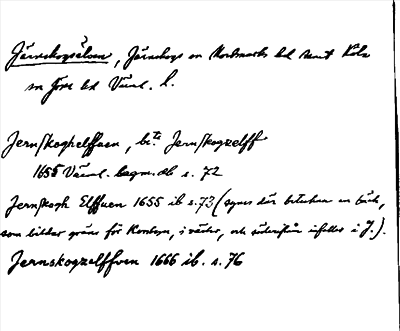 Järnskogsälven, Järnskogs o Nordmarks hd samt Köla
sn Jösse hd Värml. l.
Jernskoghelffuen, b:te Jernskogzelff
1655 Värml. begrn.db s. 72
Jernskogh Elffuen 1655 ib s. 73 (synes där beteckna en bäck,
som bildar gräns för Korskogn, i väster, och söderifrån infaller i J.).
Jernskogzelffven 1666 ib. s. 76